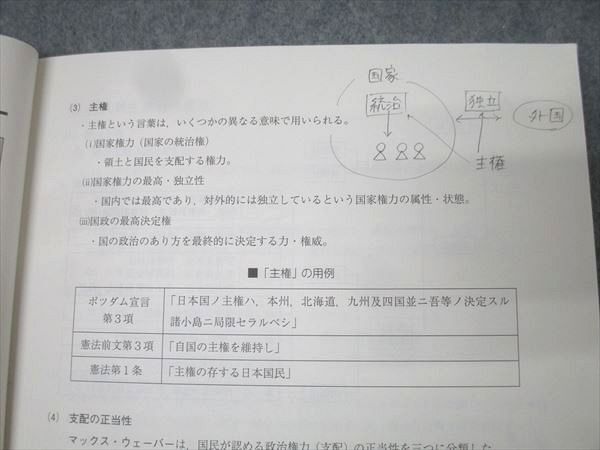 (3) 主権
・主権という言葉は、いくつかの異なる意味で用いられる。
(ⅰ)国家権力（国家の統治権）
・領土と国民を支配する権力。
(ⅱ)国家権力の最高・独立性
・国内では最高であり、対外的には独立しているという国家権力の属性・状態。
(ⅲ)国政の最高決定権
・国の政治のあり方を最終的に決定する力・権威。
国家
統治
独立
外国
主権
■「主権」の用例
ポツダム宣言
第３項
「日本国ノ主権ハ、本州、北海道、九州及四国並ニ吾等ノ決定スル
諸小島ニ局限セラルベシ」
憲法前文第３項
「自国の主権を維持し」
憲法第１条
「主権の存する日本国民」
(4) 支配の正当性
マックス・ウェーバーは、国民が認める政治権力（支配）の正当性を三つに分類した